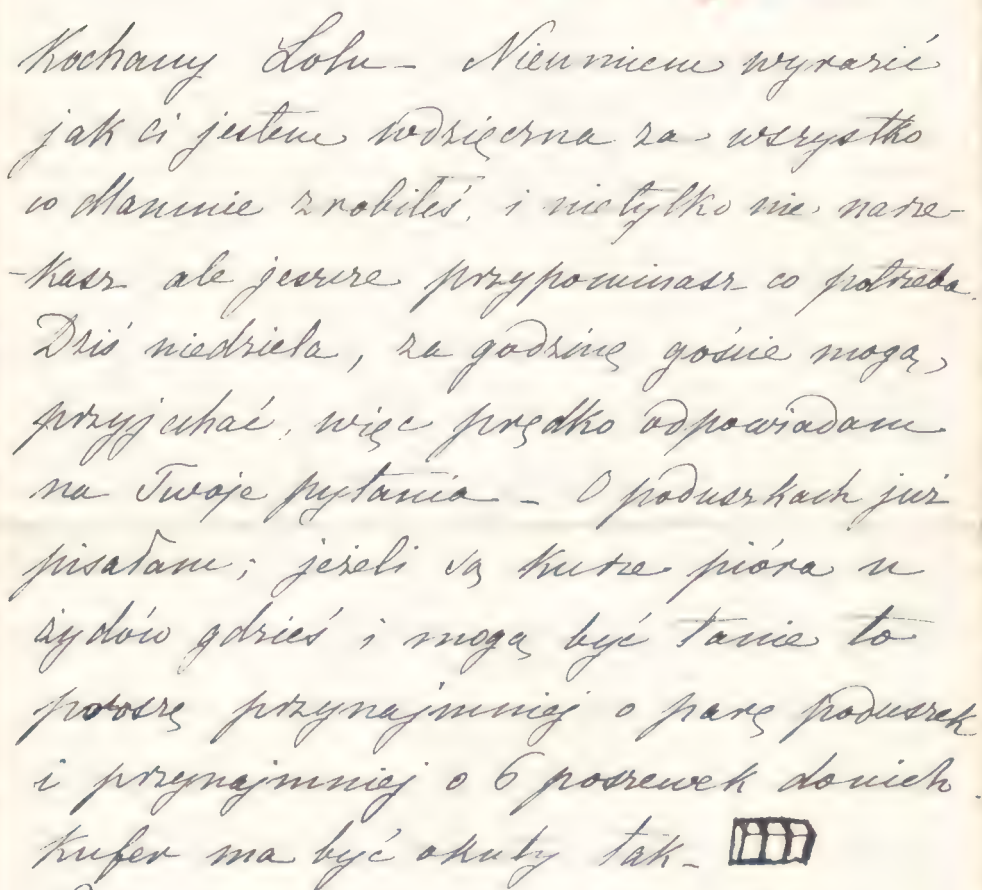 Kochany Lolu – Nieumiem wyrazić
jak ci jestem wdzięczna za wszystko
co Mamie zrobiłeś, i nietylko nie narze-
-kasz ale jeszcze przypominasz co potrzeba.
Dziś niedziela, za godzinę goście mogą
przyjechać, więc prędko odpowiadam
na Twoje pytania – O poduszkach już
pisałam; jeżeli są kurze pióra u
żydów gdzieś i mogą być tanie to
proszę przynajmniej o parę poduszek
i przynajmniej o 6 poszewek do nich.
Kufer ma być okuty tak –